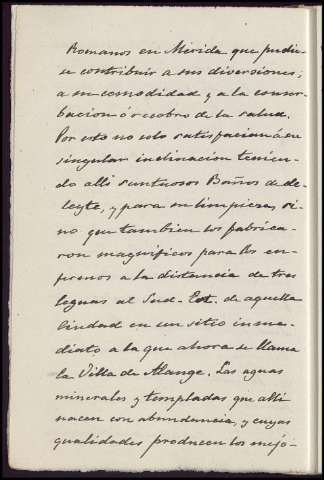 Romanos en Mérida que pudie-
se contribuir a sus diversiones;
a su comodidad y a la conser-
bacion ó recobro de la salud.
Por esto no solo satisfacian á su
singular inclinacion tenien-
do alli suntuosos Baños de de-
leyte, y para su limpieza, si-
no que tambien los fabrica-
ron magnificos para los en-
fermos a la distancia de tres
leguas al Sud-Est. de aquella
Ciudad en un sitio inme-
diato a la que ahora se llama
la Villa de Alange. Las aguas
minerales y templadas que alli
nacen con abundancia, y cuyas
qualidades producen los mejo-